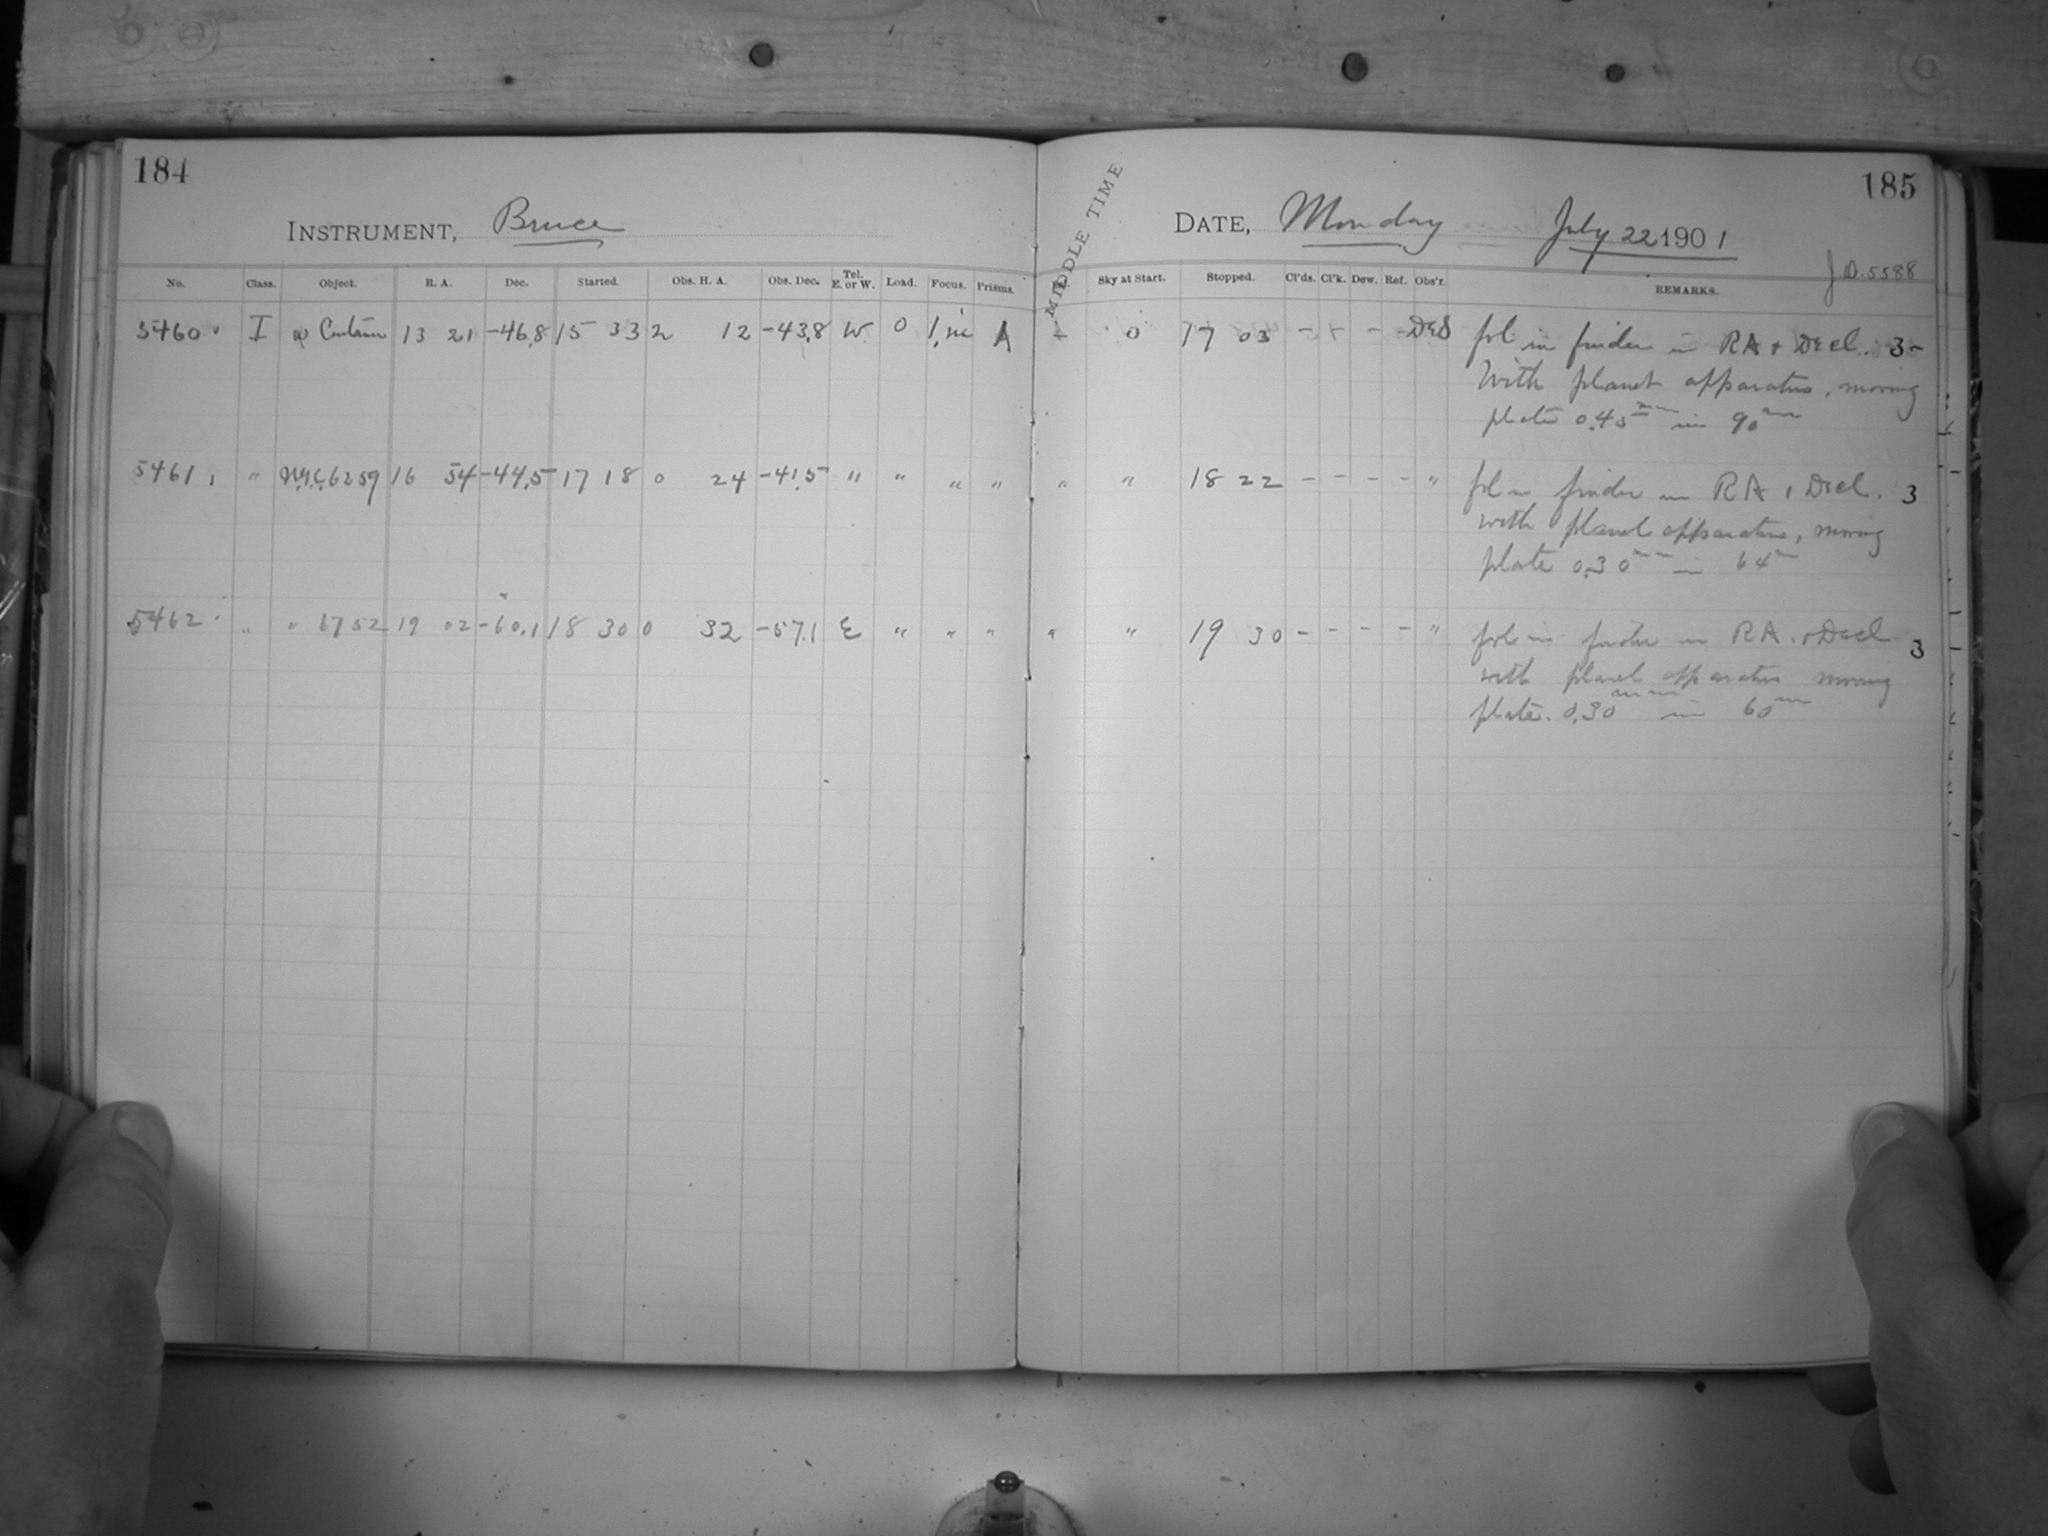 184
INSTRUMENT, Bruce
No. Class. Object. R. A. Dec. Started. Obs. H. A. Obs. Dec. Tel. E. or W. Load. Focus. Prisms.
5460 I ω Centauri 13 21 -46.8 15 33 2 12 -43.8 W. 0 A
5461 " N.G.C. 6259 16 54 -44.5 17 18 0 24 -41.5 " " " "
5462 " " 6752 19 02 -60.1 18 30 0 32 -57.1 E " " "
185
MIDDLE TIME
DATE, Monday July 22 1901
J.D. 5588
Sky at Start. Stopped. Cl'ds. Cl'k. Dew. Ref. Obs'r. REMARKS.
0 17 03 - + - - DES fol in finder in RA + Decl. 3-
With planet apparatus, moving
plate 0.45mm in 90m
" " 18 22 - - - - " fol in finder in RA + Decl. 3
with planet apparatus, moving
plate 0.30mm in 64m
" " 19 30 - - - - " fol in finder in RA + Decl 3
with planet apparatus moving
plate. 0.30mm in 60m